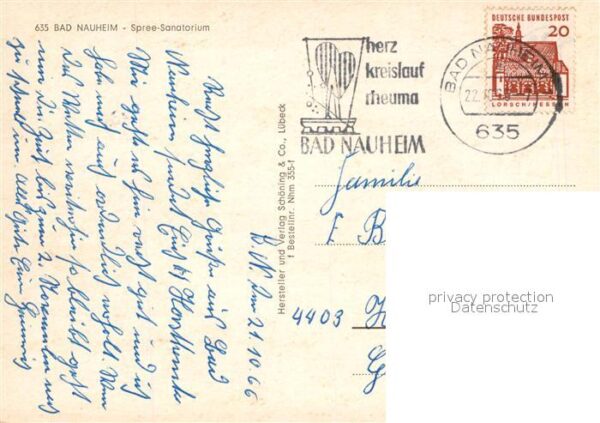 635 BAD NAUHEIM - Spree-Sanatorium
Recht herzliche Grüße aus Bad
Nauheim sendet Euch
Mir geht es hier recht gut und
habe mich auch ordentlich erholt. Wenn
das Wetter weiterhin so bleibt geht
mir die Zeit bis zum 2. November
zu schnell um. Alles Gute Euer Heinrich
B. N. den 21.10.66
Hersteller und Verlag Schöning & Co., Lübeck
f Bestellnr. Nhm 355-f
herz
kreislauf
rheuma
BAD NAUHEIM
BAD NAUHEIM
22.
635
DEUTSCHE BUNDESPOST
20
LORSCH/HESSEN
Familie
E B
4403 H
privacy protection
Datenschutz